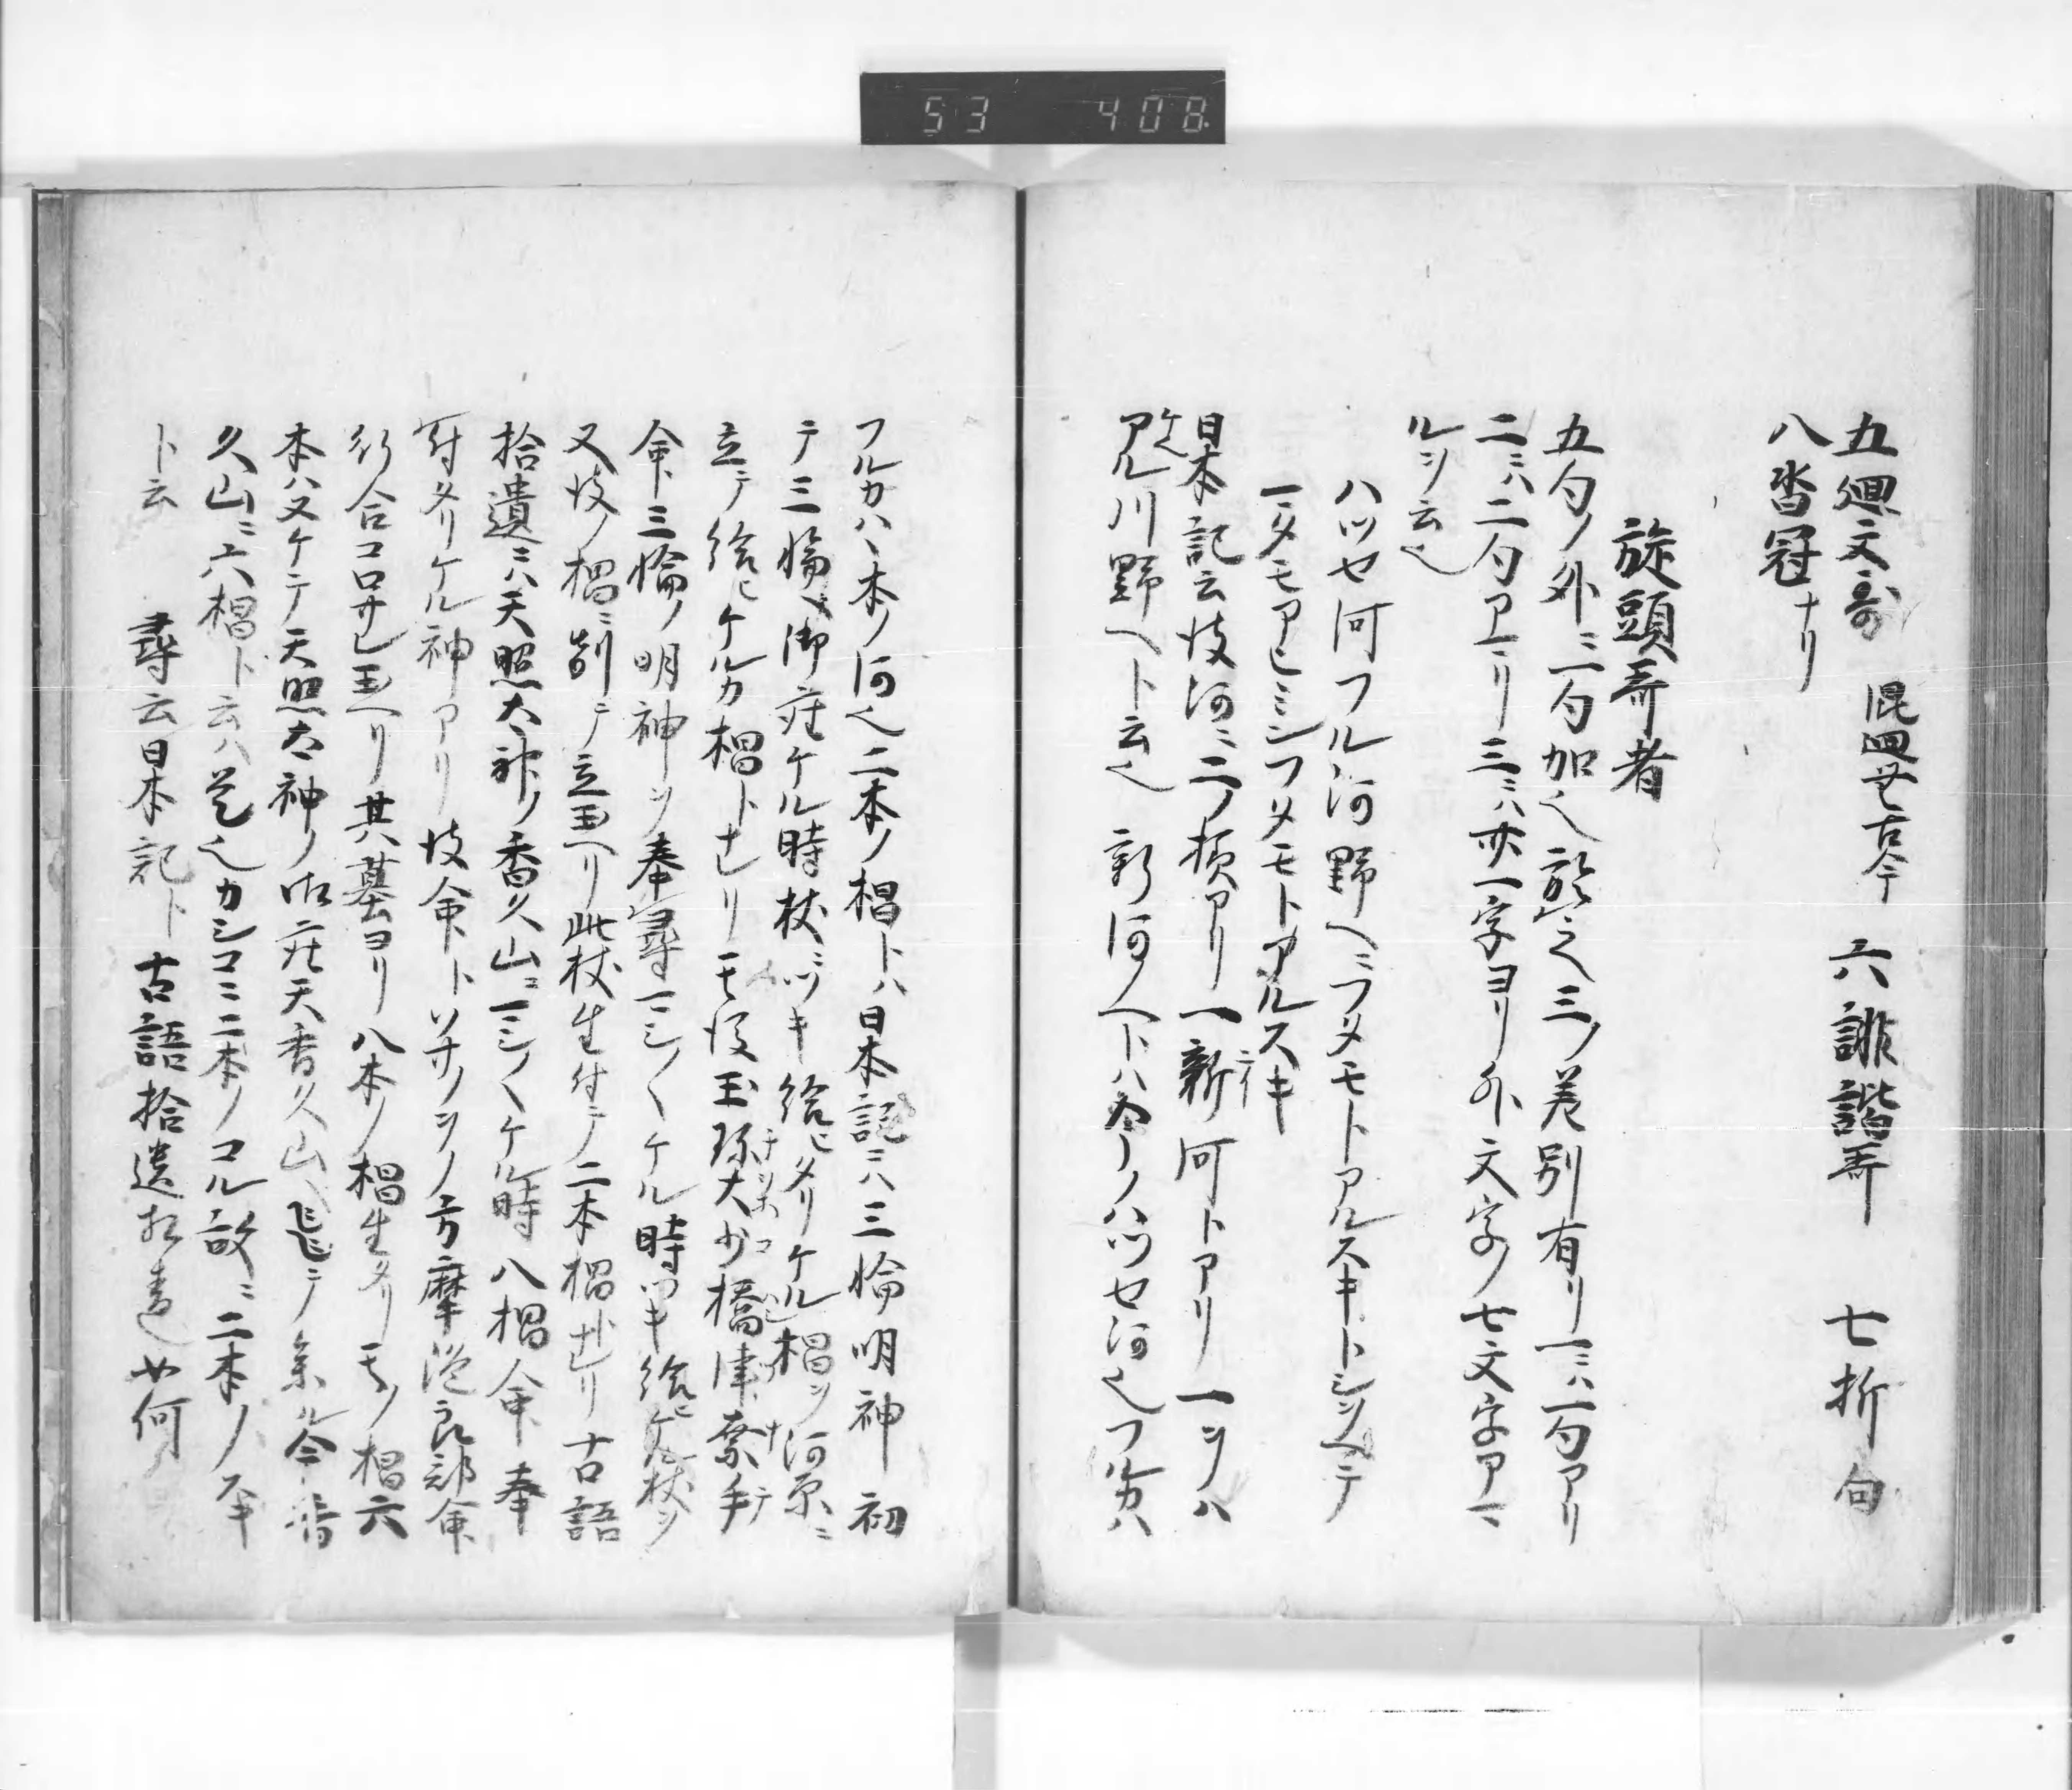 53 408
五廻文哥 混両廿古今 六誹諧哥 七折句
八沓冠ナリ
旋頭哥者
五句ノ外ニ一句加也 於之三ノ差別有リ一ニハ一句アリ
二ニハ二句アリ三ニハ亦一字ヨリ外文字ノ七文字アマ
ルヲ云也
ハツセ河フル河野ヘニフタモトアルスキトシヲヘテ
一タモアヒミンフタモトアルスキ
日本記云彼河ニ二ノ損アリ一新河トアリ一ヲハ
アル川野ヘト云也 新河ノヘトハ今ノハツセ河也フルカハ
フルカハヽ本ノ河也二本ノ椙トハ日本記ニハ三輪明神初
テ三輪ヘ御在ケル時杖ニツキ給ヒタリケル椙ヲ河原ニ
立テ給ヒケルカ椙トナレリ其後玉珎大少橋津奈手
命ト三輪ノ明神ヲ奉尋マシマシケル時ツキ給ヒケル杖ヲ
又彼ノ椙ニ副テ立玉ヘリ此杖生付テ二本椙ナレリ古語
拾遺ニハ天照太神ノ香久山ニマシマシケル時八椙命奉
討タリケル神アリ彼命トソサノヲノ方摩沲良部命
行合コロサレ玉ヘリ其墓ヨリ八本ノ椙生タリ其ノ椙六
本ハヌケテ天照太神ノ御在天香久山ヘ飛テ参ル今香
久山ニ六椙ト云ハ是也カシコニ二本ノコル故ニ二本ノ杉
ト云 尋云日本記ト古語拾遺相違如何